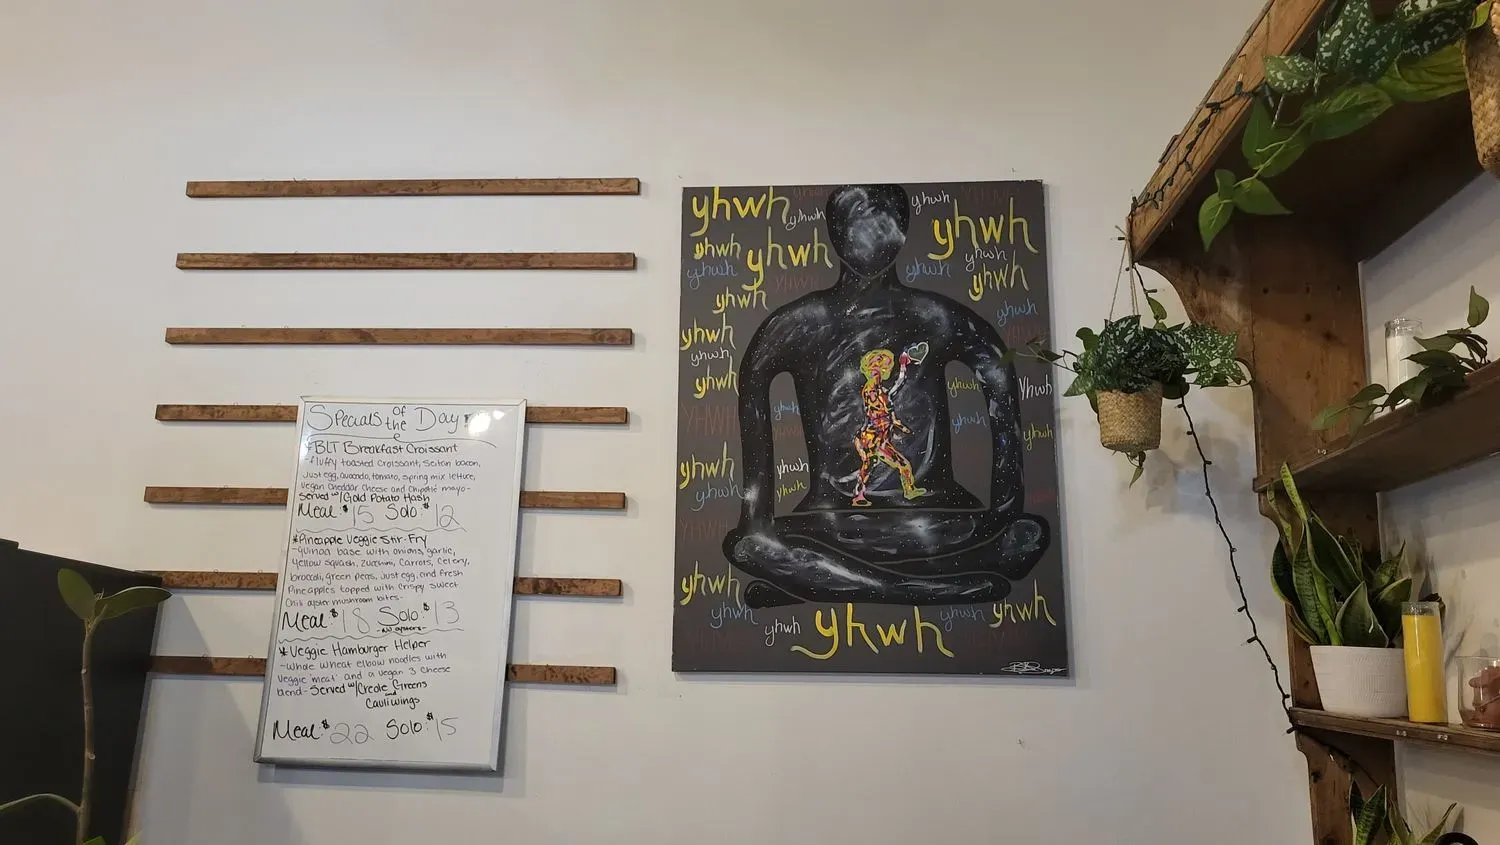 Specials of the Day
*BLT Breakfast Croissant
-fluffy toasted croissant, seitan bacon,
just egg, avocado, tomato, spring mix lettuce,
vegan cheddar cheese and chipotle mayo-
Served w/Gold Potato Hash
Meal: $15 Solo: $12
*Pineapple Veggie Stir-Fry
-quinoa base with onions, garlic,
yellow squash, zucchini, carrots, celery,
broccoli, green peas, just egg, and fresh
pineapples topped with crispy sweet
chili oyster mushroom bites-
Meal: $18 Solo: $13
*Veggie Hamburger Helper
-whole wheat elbow noodles with
veggie 'meat' and a vegan 3 cheese
blend- Served w/Creole Greens
and
Cauliwings
Meal: $22 Solo: $15
yhwh yhwh yhwh
yhwh yhwh yhwh
yhwh yhwh yhwh yhwh
yhwh YHWH yhwh
yhwh yhwh
yhwh
yhwh yhwh yhwh
yhwh yhwh
YHWH yhwh
yhwh yhwh yhwh
yhwh yhwh
YHWH
yhwh
yhwh yhwh yhwh yhwh
yhwh yhwh